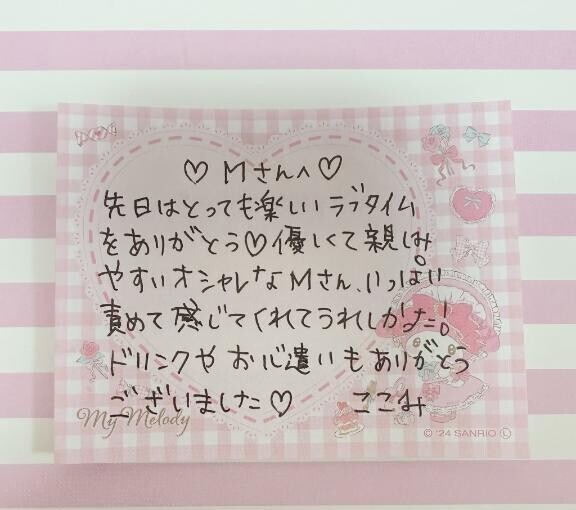 ♡ Mさんへ ♡
先日はとっても楽しいラブタイム
をありがとう♡優しくて親しみ
やすいオシャレなMさん、いっぱい
責めて感じてくれてうれしかった!
ドリンクやお心遣いもありがとう
ございました♡ ここみ
My Melody
© '24 SANRIO Ⓛ